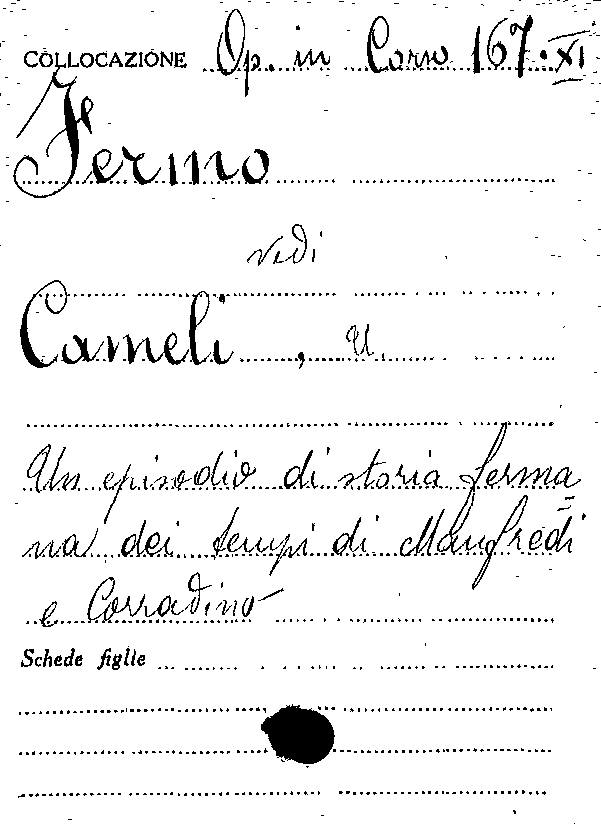 COLLOCAZIONE Op. in Corso 167.XI
Fermo
vedi
Cameli, U.
Un episodio di storia ferma=
na dei tempi di Manfredi
e Corradino
Schede figlie